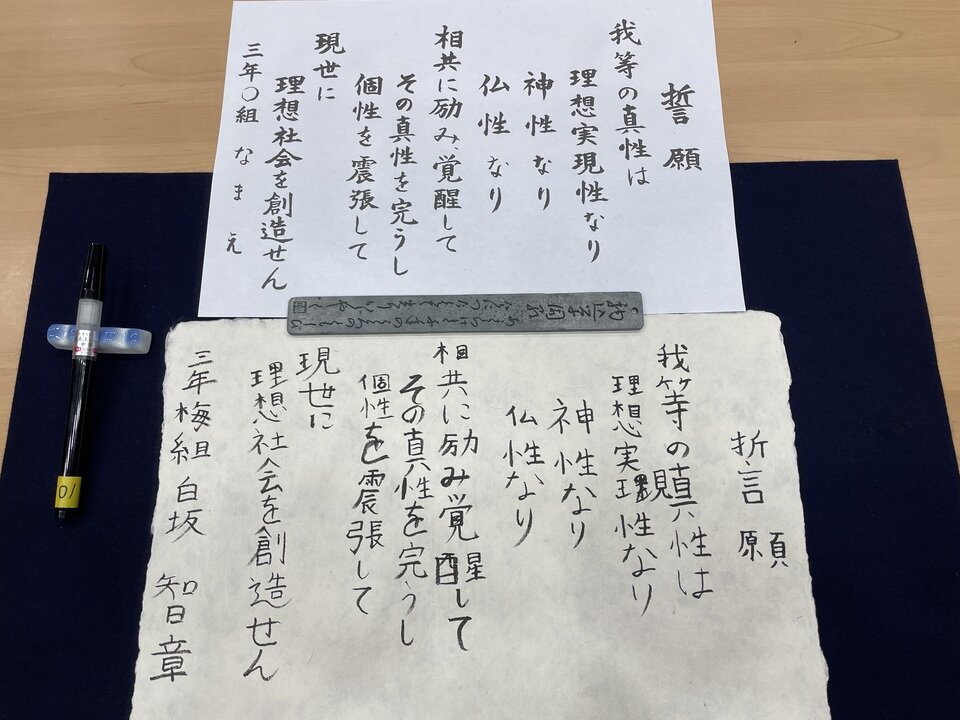 誓願
我等の真性は
理想実現性なり
神性なり
仏性なり
相共に励み、覚醒して
その真性を完うし
個性を震張して
現世に
理想社会を創造せん
三年〇組 なまえ
誓願
我等の真性は
理想実現性なり
神性なり
仏性なり
相共に励み覚醒して
その真性を完うし
個性を震張して
現世に
理想社会を創造せん
三年梅組 白坂 智章
01